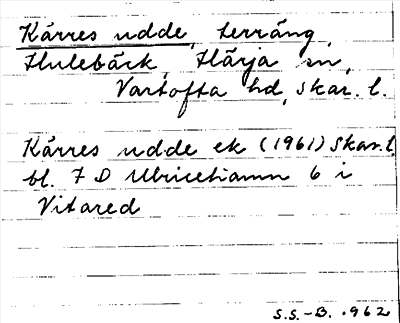 Kärres udde, terräng,
Hulebäck, Härja sn,
Vartofta hd, Skar. l.
Kärres udde ek (1961) Skar. l.
bl. 7 D Ulricehamn 6 i
Vitared
S.S.-B. 1962